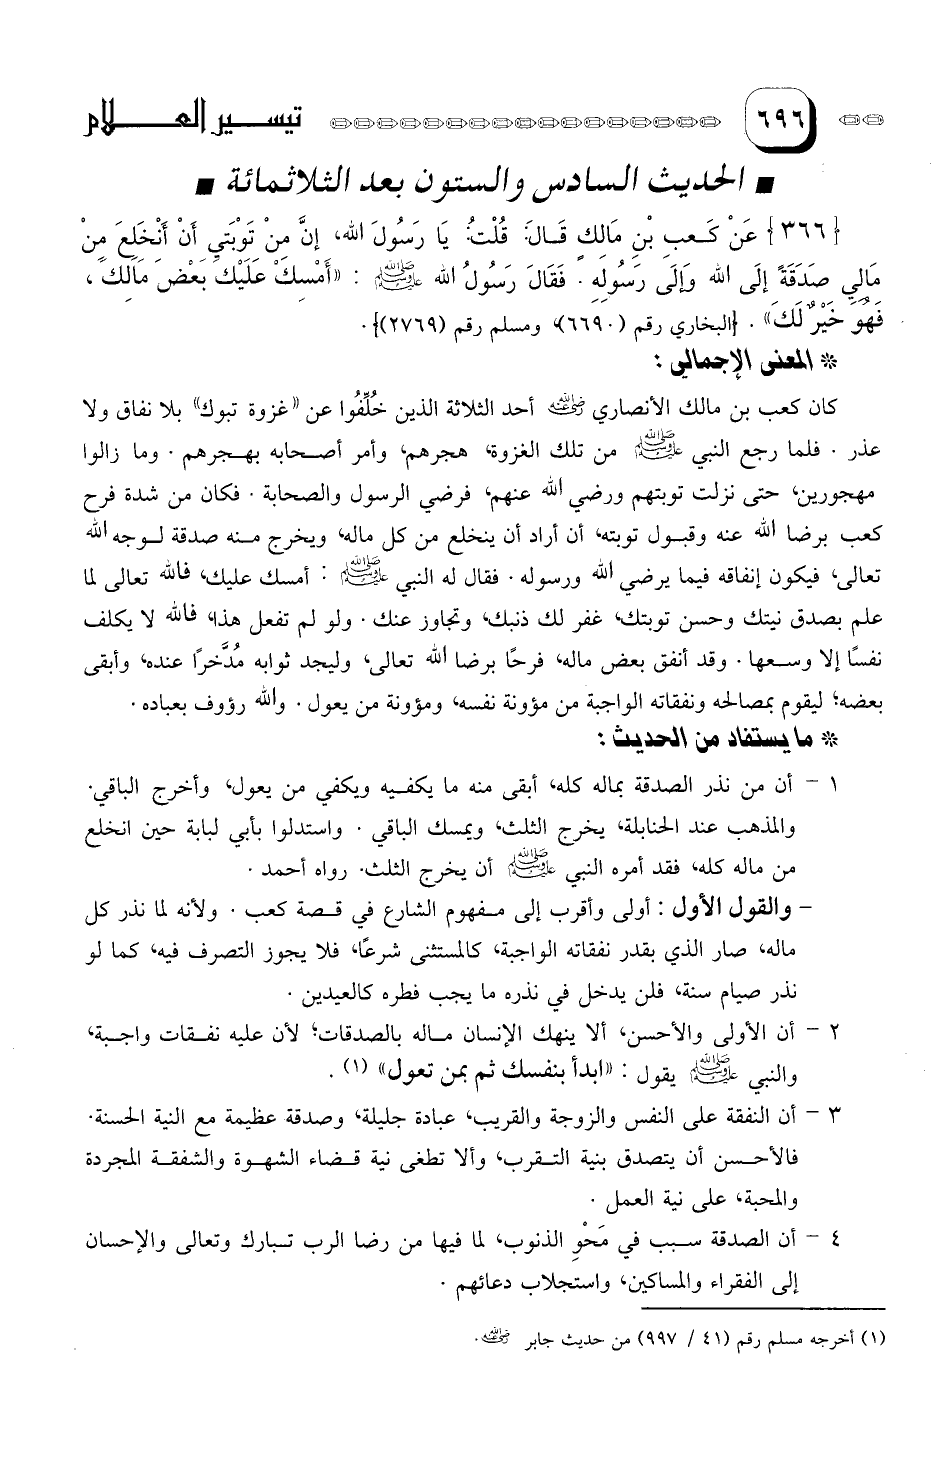 ٦٩٦ تيسير العلام
■ الحديث السادس والستون بعد الثلاثمائة ■
{٣٦٦} عَنْ كَعبِ بْنِ مَالكٍ قَالَ: قُلْتُ: يَا رَسُولَ الله، إنَّ مِنْ تَوْبَتي أَنْ أَنْخَلِعَ مِنِ
مَالِي صَدَقَةً إلَى الله وَإلَى رَسُولِهِ. فَقَالَ رَسُولُ الله ﷺ : «أَمْسِكْ عَلَيْكَ بَعْضَ مَالكَ،
فَهُوَ خَيْرٌ لَكَ». {البخاري رقم (٦٦٩٠)، ومسلم رقم (٢٧٦٩)}.
* المعنى الإجمالي :
كان كعب بن مالك الأنصاري رضي الله عنه أحد الثلاثة الذين خُلِّفُوا عن «غزوة تبوك» بلا نفاق ولا
عذر . فلما رجع النبي ﷺ من تلك الغزوة، هجرهم، وأمر أصحابه بهجرهم . وما زالوا
مهجورين، حتى نزلت توبتهم ورضي الله عنهم، فرضي الرسول والصحابة . فكان من شدة فرح
كعب برضا الله عنه وقبول توبته، أن أراد أن ينخلع من كل ماله، ويخرج منه صدقة لوجه الله
تعالى، فيكون إنفاقه فيما يرضي الله ورسوله . فقال له النبي ﷺ : أمسك عليك، فالله تعالى لما
علم بصدق نيتك وحسن توبتك، غفر لك ذنبك، وتجاوز عنك . ولو لم تفعل هذا، فالله لا يكلف
نفسًا إلا وسعها . وقد أنفق بعض ماله، فرحًا برضا الله تعالى، وليجد ثوابه مُدَّخرًا عنده، وأبقى
بعضه؛ ليقوم بمصالحه ونفقاته الواجبة من مؤونة نفسه، ومؤونة من يعول . والله رؤوف بعباده .
* ما يستفاد من الحديث :
١ - أن من نذر الصدقة بماله كله، أبقى منه ما يكفيه ويكفي من يعول، وأخرج الباقي.
والمذهب عند الحنابلة، يخرج الثلث، ويمسك الباقي . واستدلوا بأبي لبابة حين انخلع
من ماله كله، فقد أمره النبي ﷺ أن يخرج الثلث. رواه أحمد .
- والقول الأول : أولى وأقرب إلى مفهوم الشارع في قصة كعب . ولأنه لما نذر كل
ماله، صار الذي بقدر نفقاته الواجبة، كالمستثنى شرعًا، فلا يجوز التصرف فيه، كما لو
نذر صيام سنة، فلن يدخل في نذره ما يجب فطره كالعيدين .
٢ - أن الأولى والأحسن، ألا ينهك الإنسان ماله بالصدقات؛ لأن عليه نفقات واجبة،
والنبي ﷺ يقول : «ابدأ بنفسك ثم بمن تعول» (١) .
٣ - أن النفقة على النفس والزوجة والقريب، عبادة جليلة، وصدقة عظيمة مع النية الحسنة.
فالأحسن أن يتصدق بنية التقرب، وألا تطغى نية قضاء الشهوة والشفقة المجردة
والمحبة، على نية العمل .
٤ - أن الصدقة سبب في مَحْوِ الذنوب، لما فيها من رضا الرب تبارك وتعالى والإحسان
إلى الفقراء والمساكين، واستجلاب دعائهم .
(١) أخرجه مسلم رقم (٤١ / ٩٩٧) من حديث جابر رضي الله عنه.